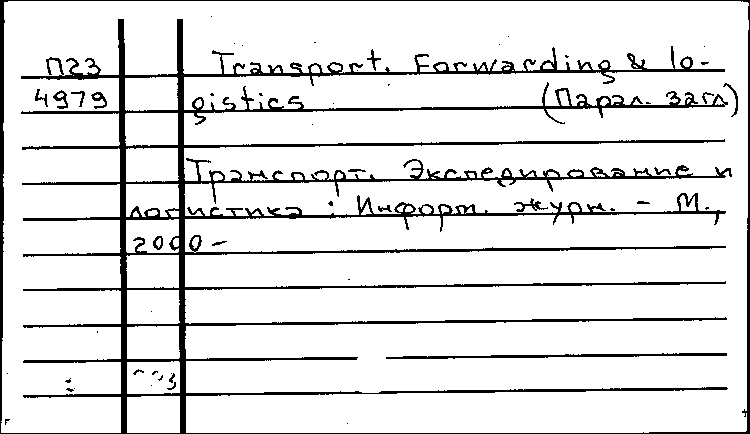 П23 Transport. Forwarding & lo-
4979 gistics (Парал. загл)
Транспорт. Экспедирование и
логистика : Информ. журн. - М.,
2000 -